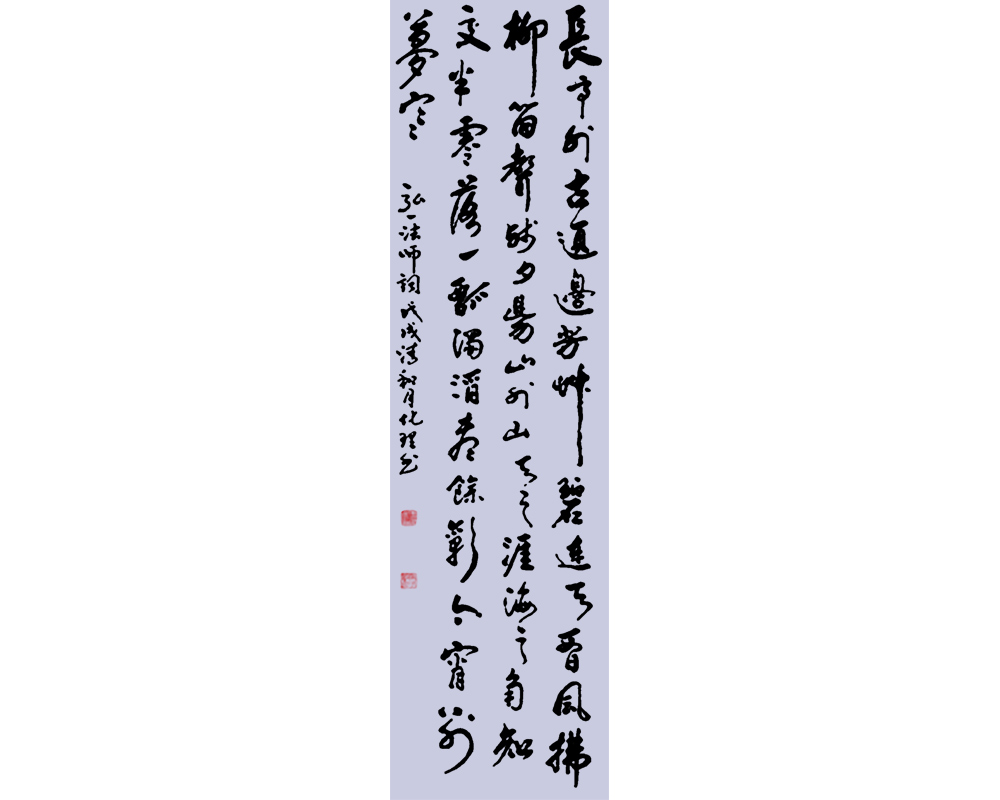 長亭外古道邊芳艸碧連天晉風拂
柳笛聲殘夕陽山外山天之涯海之角知
交半零落一瓢濁酒盡餘歡今宵別
夢寒
弘一法師詞戊戌清和月化理书